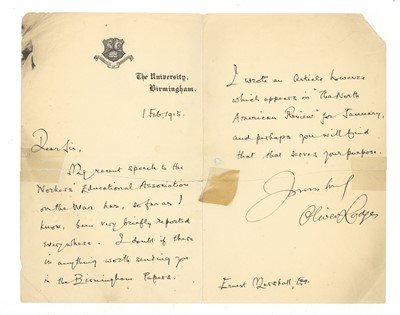 The University,
Birmingham.
1 Feb. 1918.
Dear Sir,
My recent speech to the
Workers' Educational Association
on the War has, so far as I
know, been very briefly reported
everywhere. I doubt if there
is anything worth sending you
in the Birmingham Papers.
I wrote an Article however
which appears in "The North
American Review" for January,
and perhaps you will find
that that serves your purpose.
Yours truly
Oliver Lodge
Ernest Marshall, Esq.